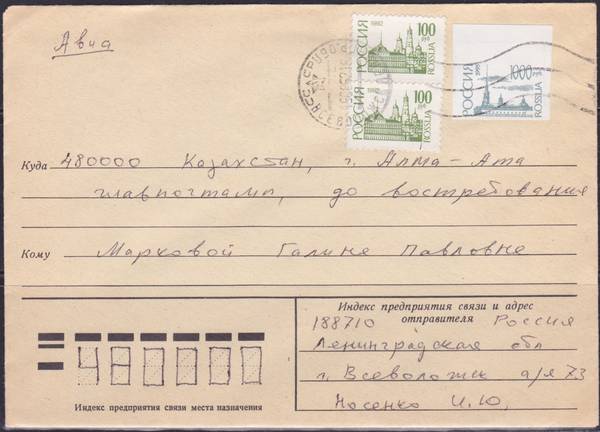 Авиа
1992 100 руб РОССИЯ ROSSIJA
1992 100 руб РОССИЯ ROSSIJA
1995 1000 руб. РОССИЯ ROSSIJA
СССР
Куда 480000 Казахстан, г. Алма-Ата
главпочтамт, до востребования
Кому Марковой Галине Павловне
Индекс предприятия связи и адрес
отправителя
188710 Россия
Ленинградская обл
г. Всеволожск а/я 73
Носенко И.Ю.
480000
Индекс предприятия связи места назначения